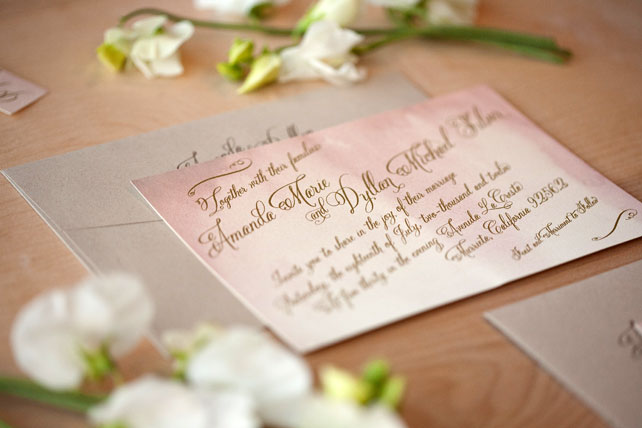 Together with their families
Amanda Marie
and Dyllan Michael
Invite you to share in the joy of their marriage
the eighteenth of July, two-thousand and twelve
five thirty in the evening
Avenida La Cresta
Murrieta, California 92562
Feast and Merriment to Follow